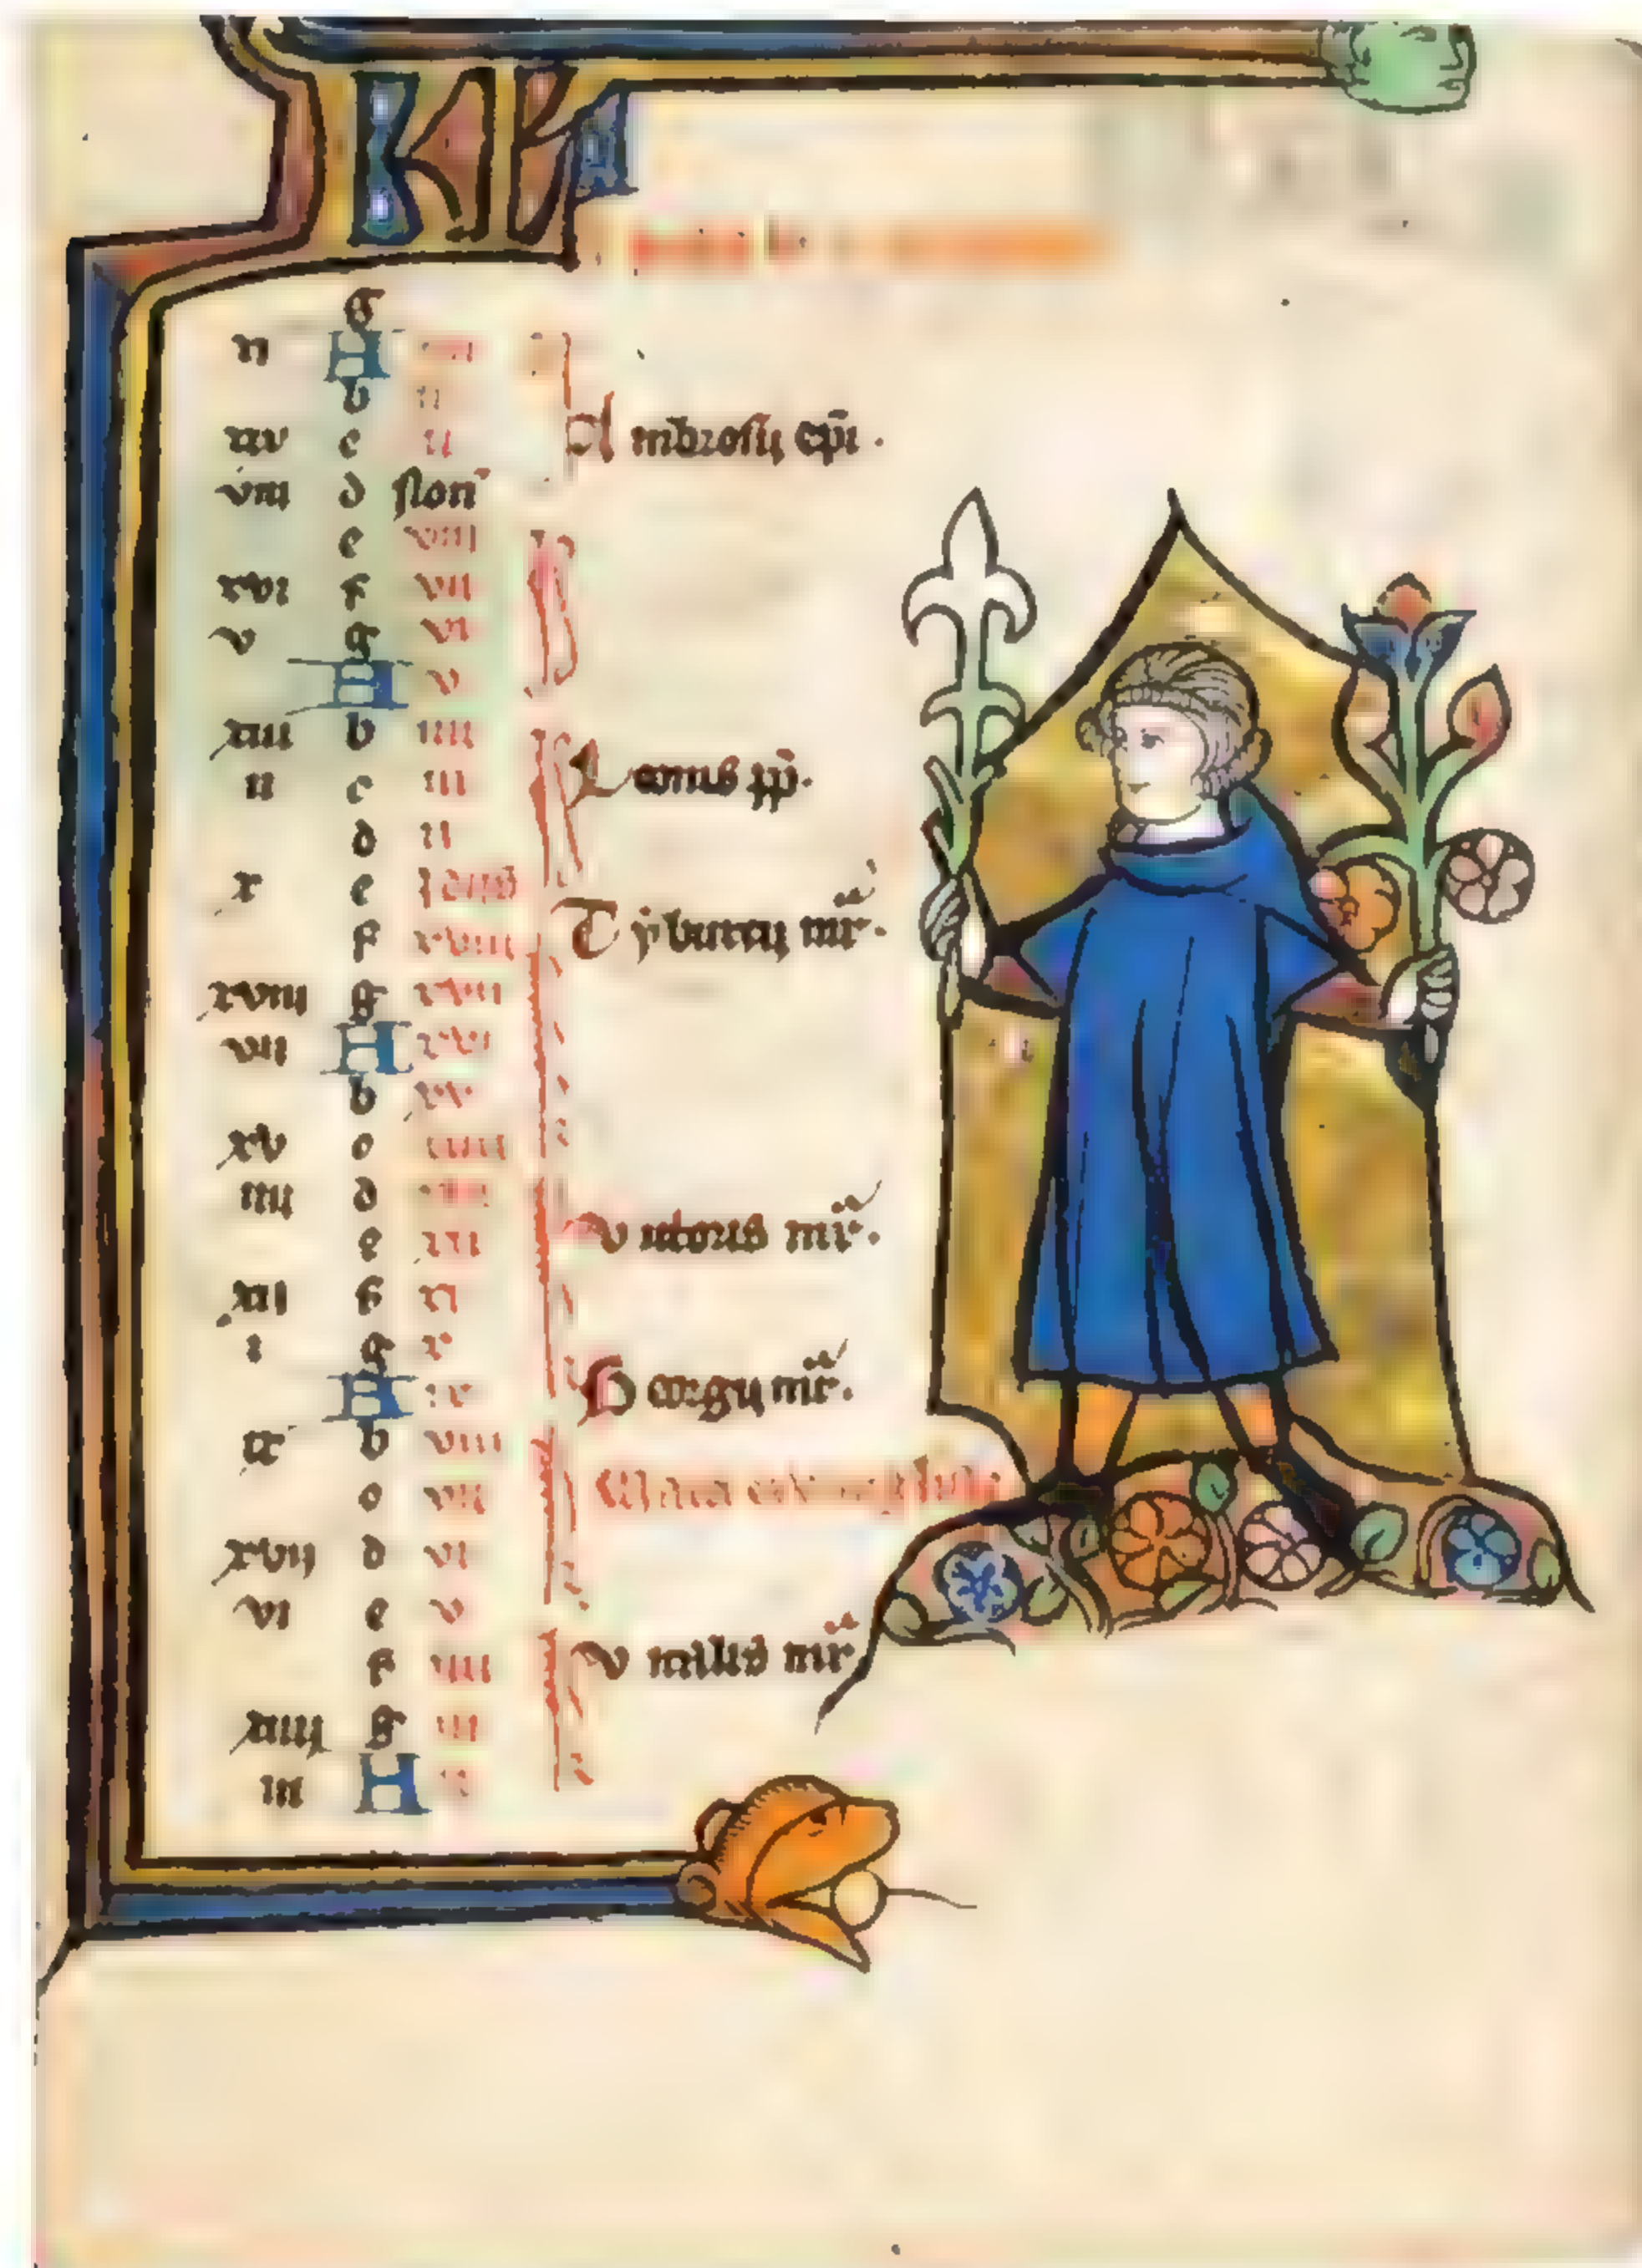 KL
g
xi A iiii
b iii
xix c ii Ambrosij ep̄i .
viii d non̄
e viii
xvi f vii
v g vi
A v
xiii b iiii
ii c iii Leonis pp̄ .
d ii
x e idus
f xviii Tyburcij mr̄ .
xviii g xvii
vii A xvi
b xv
xv c xiiii
iiij d xiii
e xii Victoris mr̄ .
xii f xi
i g x
A ix Georgij mr̄ .
ix b viii
c vii Marci
xvij d vi
vi e v
f iiii Vitalis mr̄
xiiij g iii
iii A ii